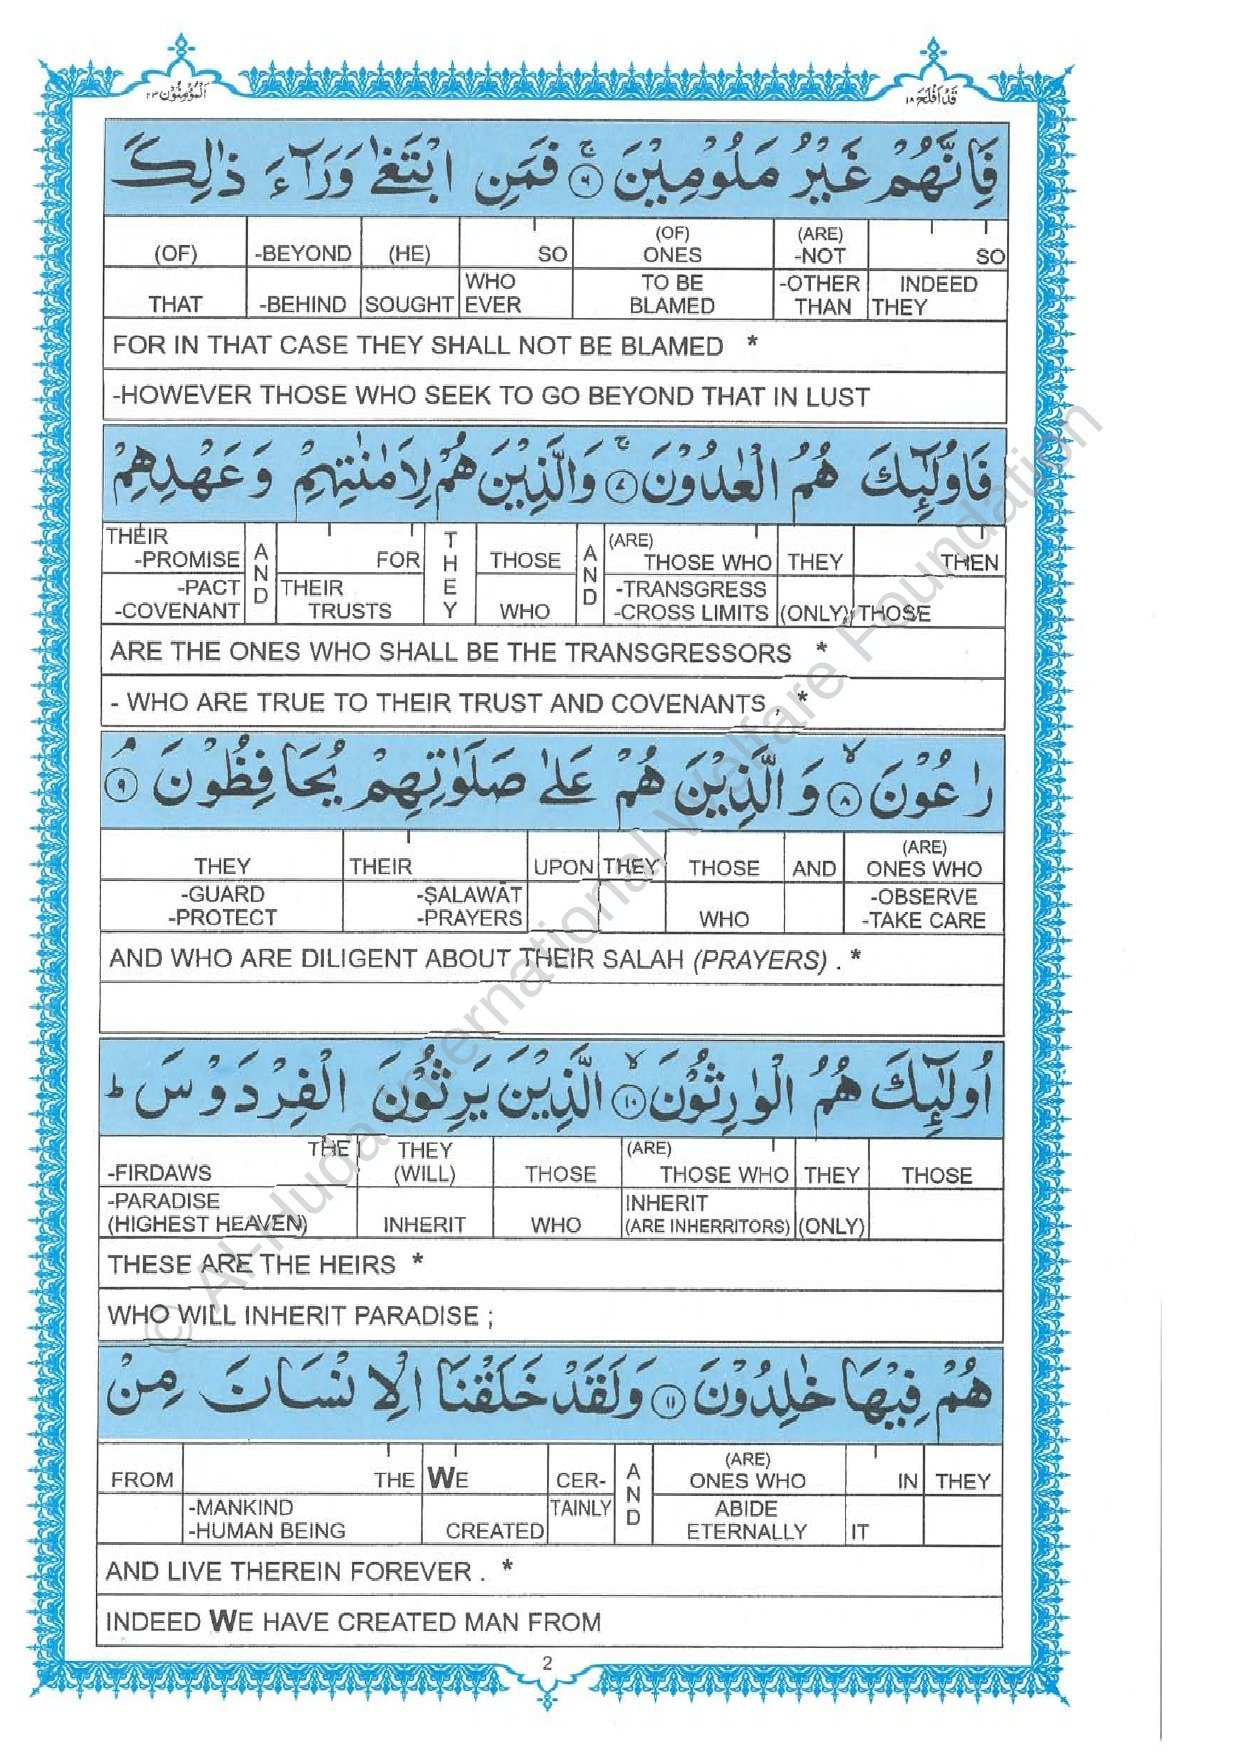 قَدْ اَفْلَحَ ١٨
اَلْمُؤْمِنُوْن ٢٣
فَاِنَّهُمْ غَيْرُ مَلُوْمِيْنَ ۚ ﴿٦﴾ فَمَنِ ابْتَغٰى وَرَآءَ ذٰلِكَ
(OF) -BEYOND (HE) SO (OF) ONES (ARE) -NOT SO
THAT -BEHIND SOUGHT WHO EVER TO BE BLAMED -OTHER THAN INDEED THEY
FOR IN THAT CASE THEY SHALL NOT BE BLAMED *
-HOWEVER THOSE WHO SEEK TO GO BEYOND THAT IN LUST
فَاُولٰٓئِكَ هُمُ الْعٰدُوْنَ ۚ ﴿٧﴾ وَالَّذِيْنَ هُمْ لِاَمٰنٰتِهِمْ وَعَهْدِهِمْ
THEIR -PROMISE AND FOR THEY THOSE AND (ARE) THOSE WHO THEY THEN
-PACT -COVENANT THEIR TRUSTS WHO -TRANSGRESS -CROSS LIMITS (ONLY) THOSE
ARE THE ONES WHO SHALL BE THE TRANSGRESSORS *
- WHO ARE TRUE TO THEIR TRUST AND COVENANTS , *
رٰعُوْنَ ۙ ﴿٨﴾ وَالَّذِيْنَ هُمْ عَلٰى صَلَوٰتِهِمْ يُحَافِظُوْنَ ۘ ﴿٩﴾
THEY THEIR UPON THEY THOSE AND (ARE) ONES WHO
-GUARD -PROTECT -ṢALAWĀT -PRAYERS WHO -OBSERVE -TAKE CARE
AND WHO ARE DILIGENT ABOUT THEIR SALAH (PRAYERS) . *
اُولٰٓئِكَ هُمُ الْوٰرِثُوْنَ ۙ ﴿١٠﴾ الَّذِيْنَ يَرِثُوْنَ الْفِرْدَوْسَ ؕ
THE -FIRDAWS THEY (WILL) THOSE (ARE) THOSE WHO THEY THOSE
-PARADISE (HIGHEST HEAVEN) INHERIT WHO INHERIT (ARE INHERRITORS) (ONLY)
THESE ARE THE HEIRS *
WHO WILL INHERIT PARADISE ;
هُمْ فِيْهَا خٰلِدُوْنَ ﴿١١﴾ وَلَقَدْ خَلَقْنَا الْاِنْسَانَ مِنْ
FROM THE WE CER- AND (ARE) ONES WHO IN THEY
-MANKIND -HUMAN BEING CREATED TAINLY ABIDE ETERNALLY IT
AND LIVE THEREIN FOREVER . *
INDEED WE HAVE CREATED MAN FROM
2
© Al-Huda International Welfare Foundation